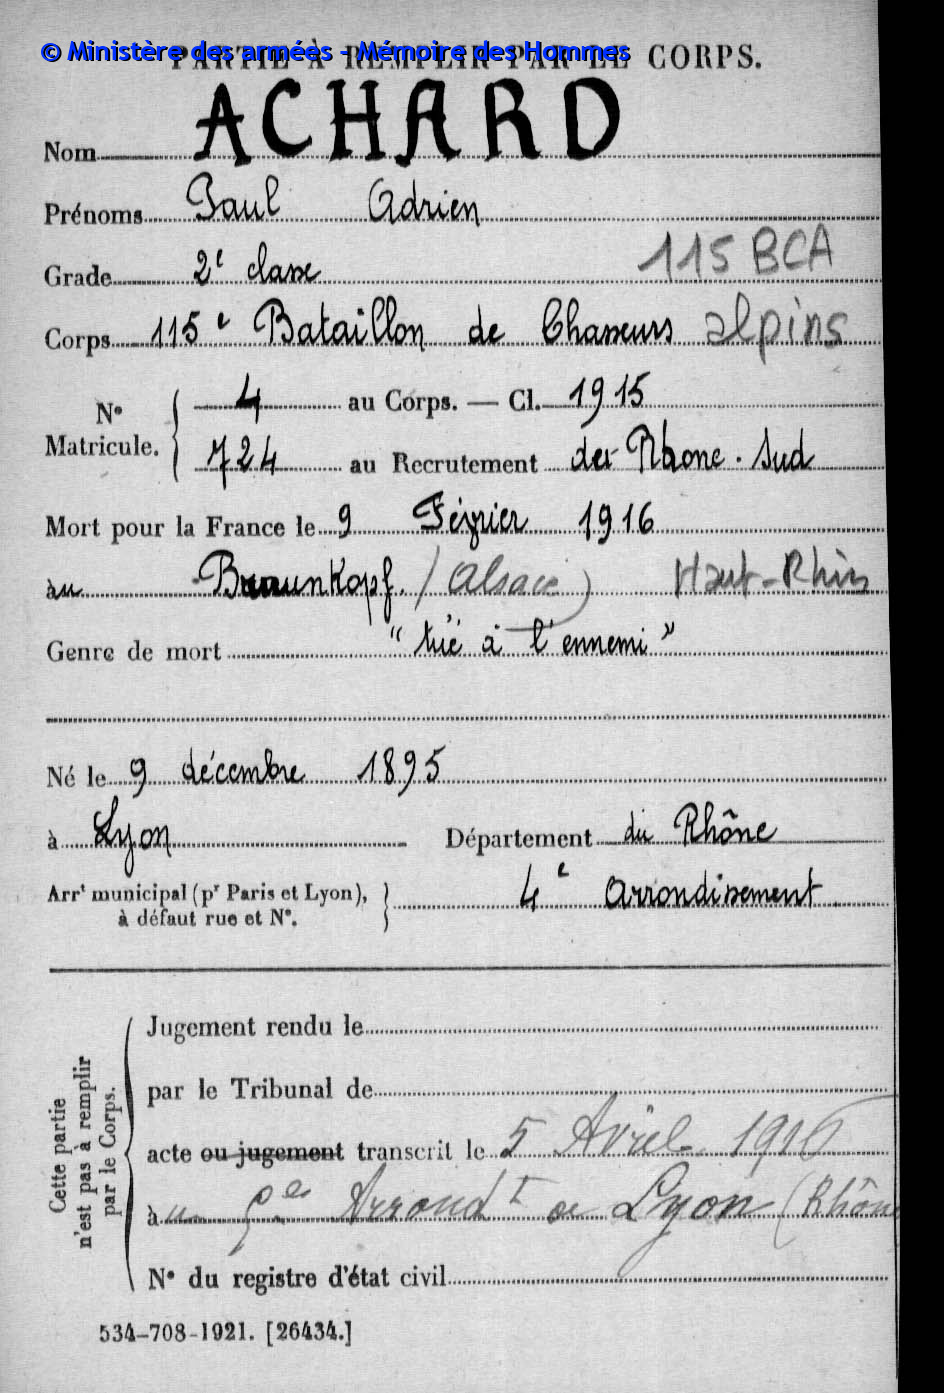 © Ministère des armées - Mémoire des Hommes
PARTIE À REMPLIR PAR LE CORPS.
Nom ACHARD
Prénoms Paul Adrien
Grade 2e classe 115 BCA
Corps 115e Bataillon de Chasseurs alpins
N° Matricule. 4 au Corps. — Cl. 1915
724 au Recrutement du Rhone . Sud
Mort pour la France le 9 Février 1916
au Braunkopf. (Alsace) Haut-Rhin
Genre de mort "tué à l'ennemi"
Né le 9 décembre 1895
à Lyon Département du Rhône
Arrt municipal (pr Paris et Lyon), à défaut rue et N°. 4e arrondissement
Cette partie n'est pas à remplir par le Corps.
Jugement rendu le
par le Tribunal de
acte ou jugement transcrit le 5 Avril 1916
à Arrondt de Lyon (Rhône
N° du registre d'état civil
534-708-1921. [26434.]